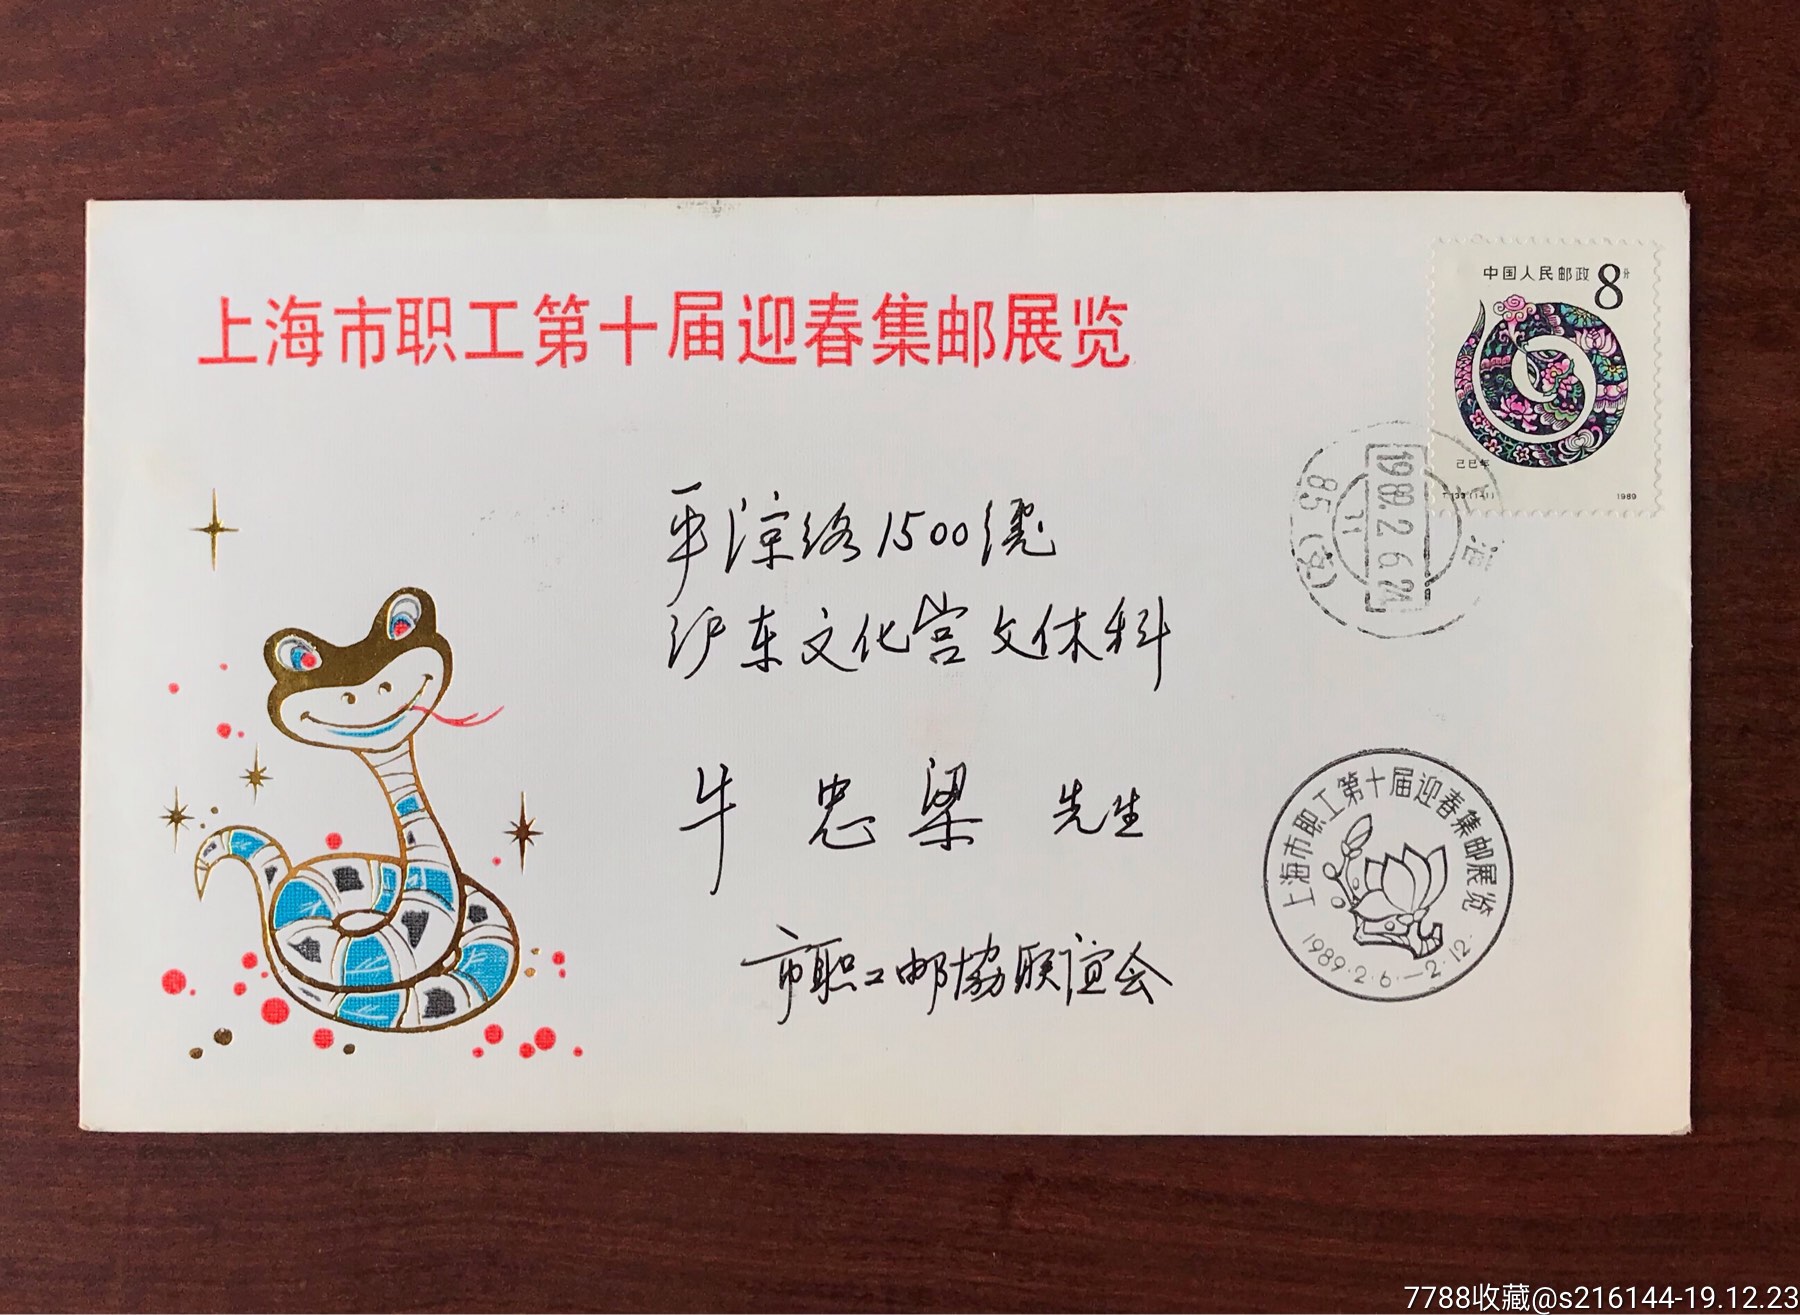 上海市职工第十届迎春集邮展览
中国人民邮政 8分
己巳年
T.133.(1-1) 1989
上海
1989.2.6.21
85(支)
11
平凉路1500号
沪东文化宫文体科
牛忠梁 先生
市职工邮协联谊会
上海市职工第十届迎春集邮展览
1989.2.6.—2.12.
7788收藏@s216144-19.12.23